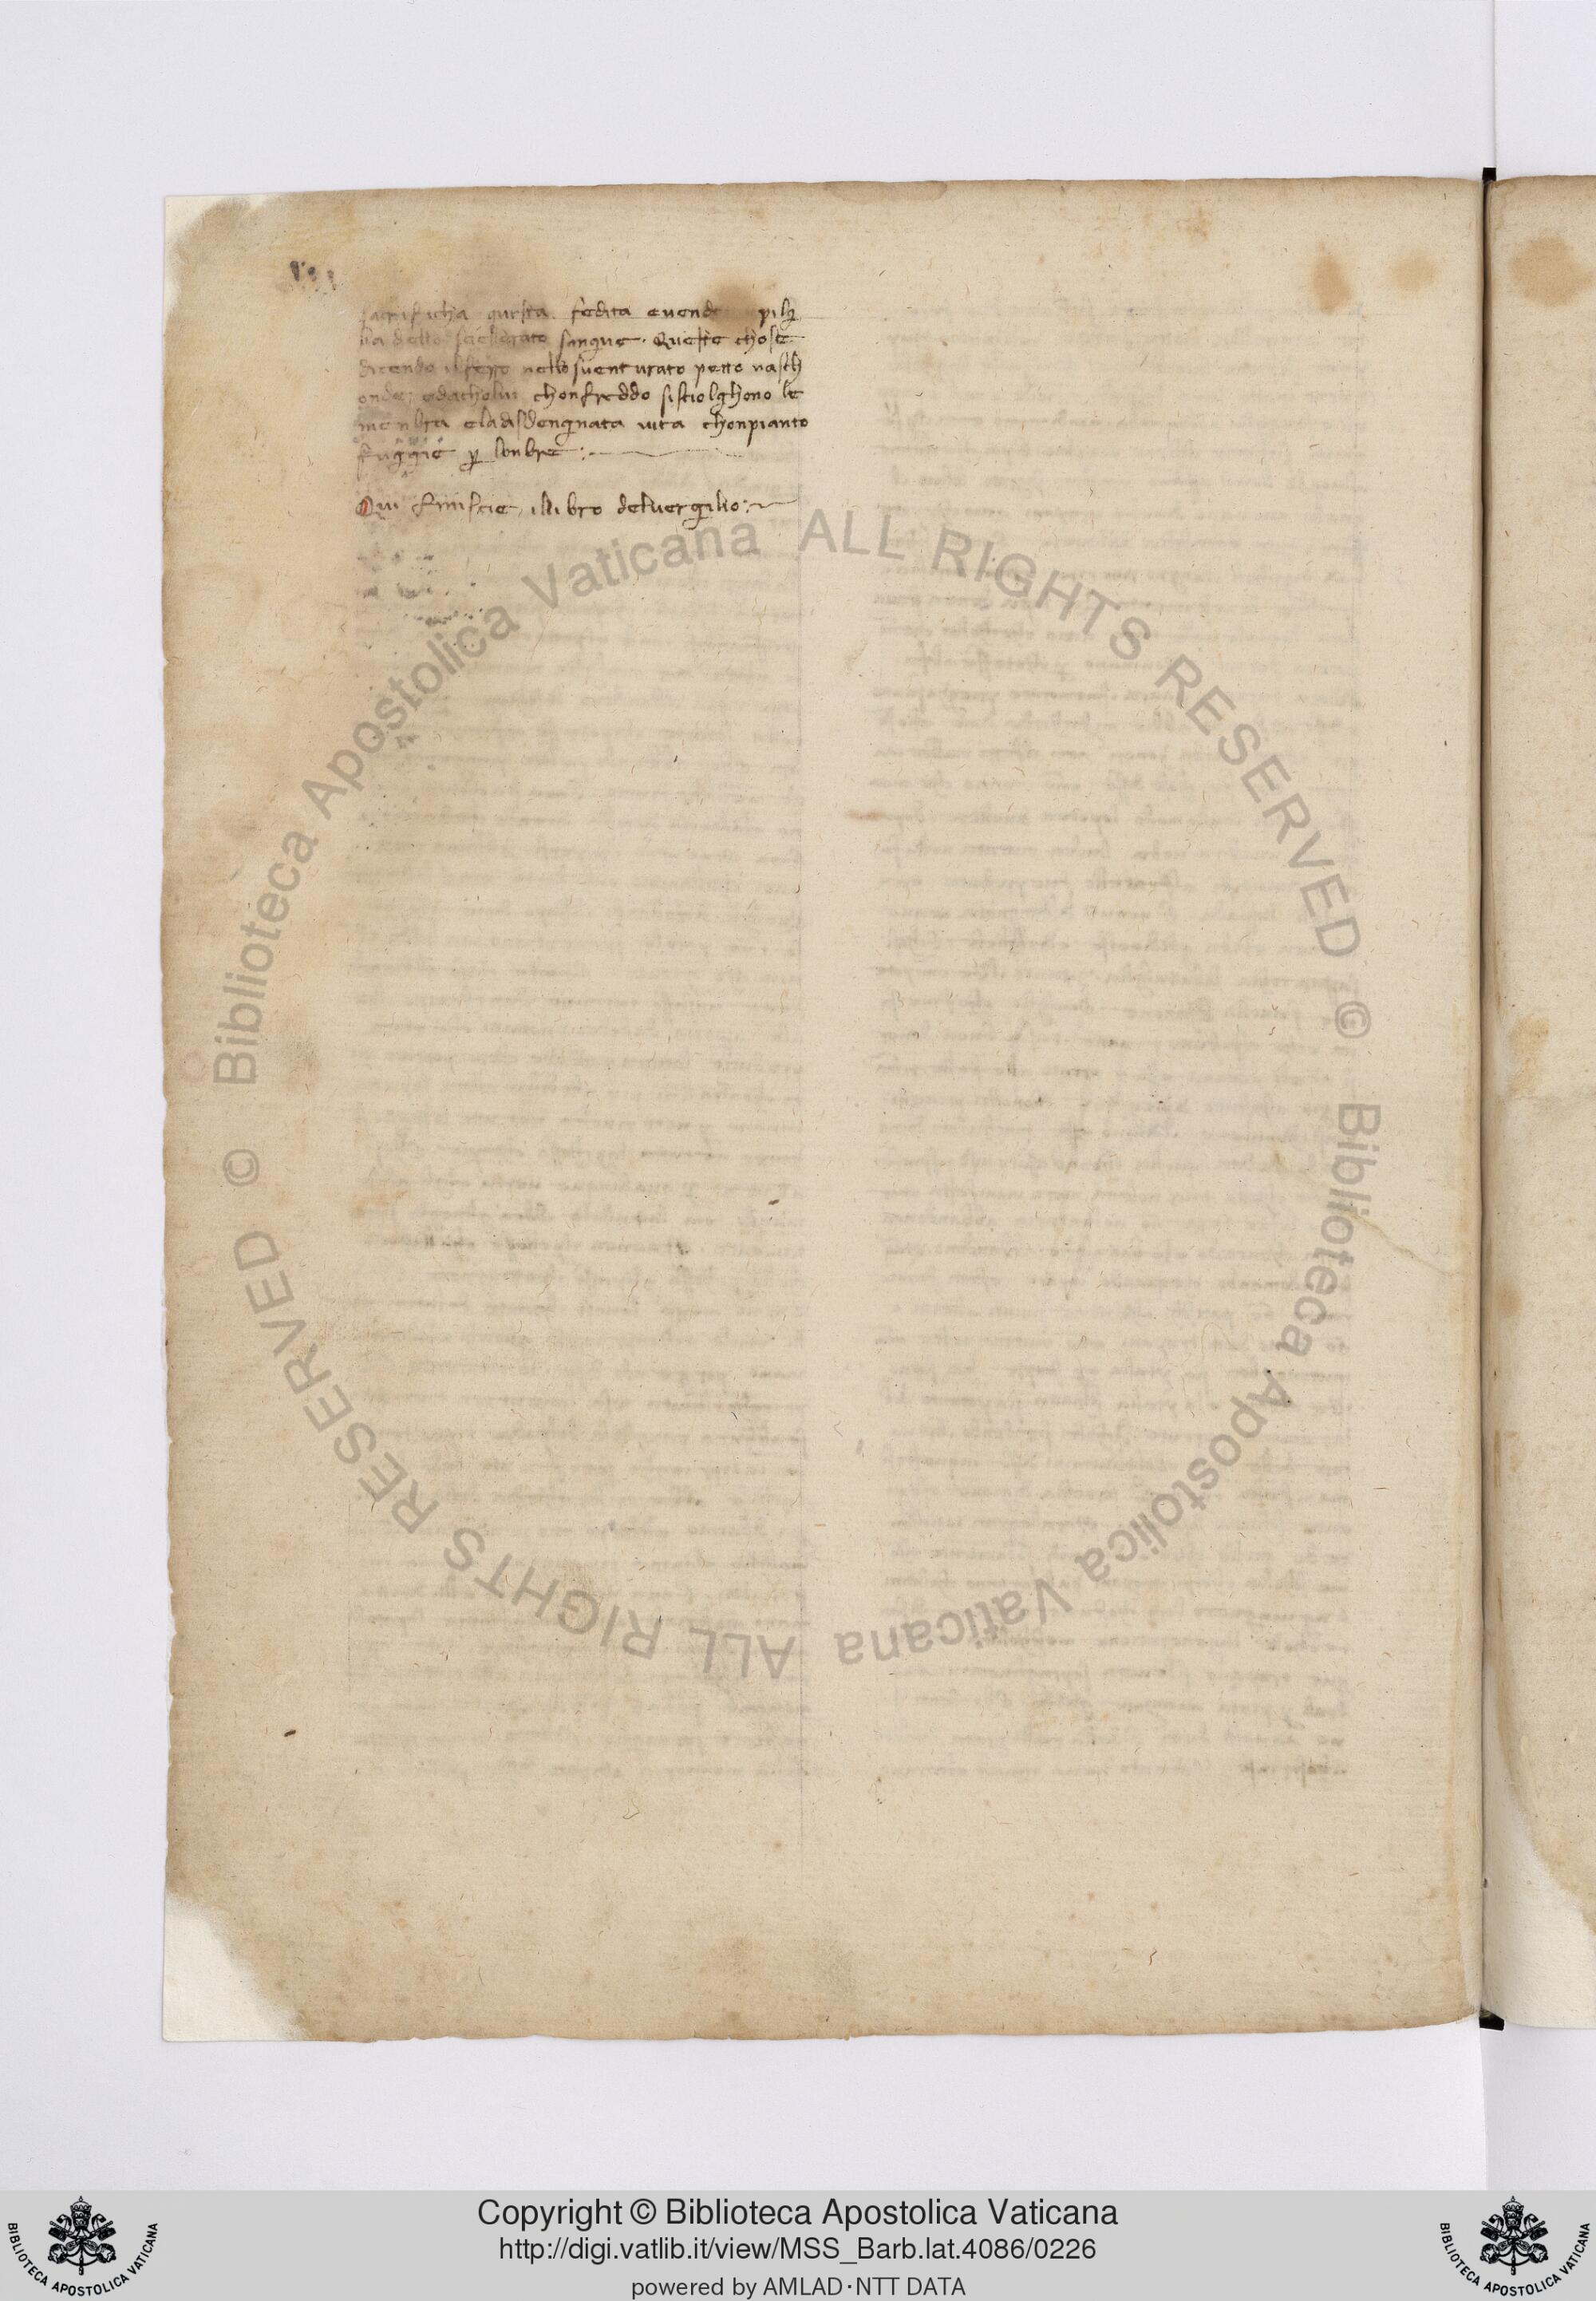 sacrificha questa fedita e vende pigli
va dello sciellerato sangue. Queste chose
dicendo il ferro nello sventurato petto nasch
onde; edacholui chonfreddo sisciolghono le
menbra eladisdengnata vita chonpianto
fuggie p lonbre:~
Qui finiscie illibro delvergilio:~
© Biblioteca Apostolica Vaticana ALL RIGHTS RESERVED
© Biblioteca Apostolica Vaticana ALL RIGHTS RESERVED
Copyright © Biblioteca Apostolica Vaticana
http://digi.vatlib.it/view/MSS_Barb.lat.4086/0226
powered by AMLAD·NTT DATA
BIBLIOTECA APOSTOLICA VATICANA
BIBLIOTECA APOSTOLICA VATICANA